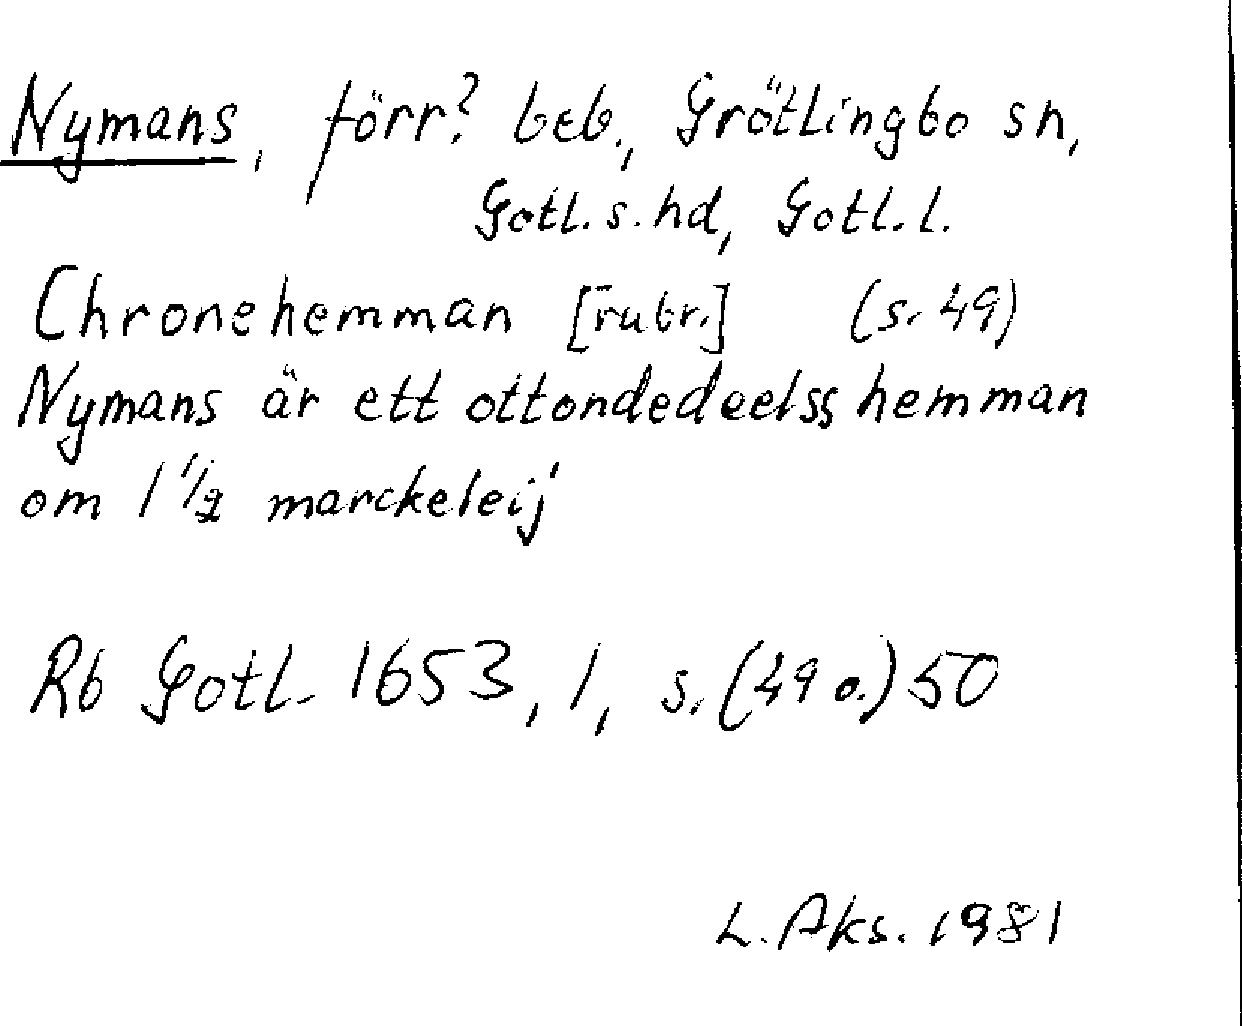 Nymans, förr? beb., Grötlingbo sn,
Gotl. s. hd, Gotl. l.
Chronehemman [rubr.] (s. 49)
Nymans är ett ottondedeelss hemman
om 1 1/2 marckeleij
Rb Gotl. 1653, 1, s. (49 o.) 50
L. Aks. 1981